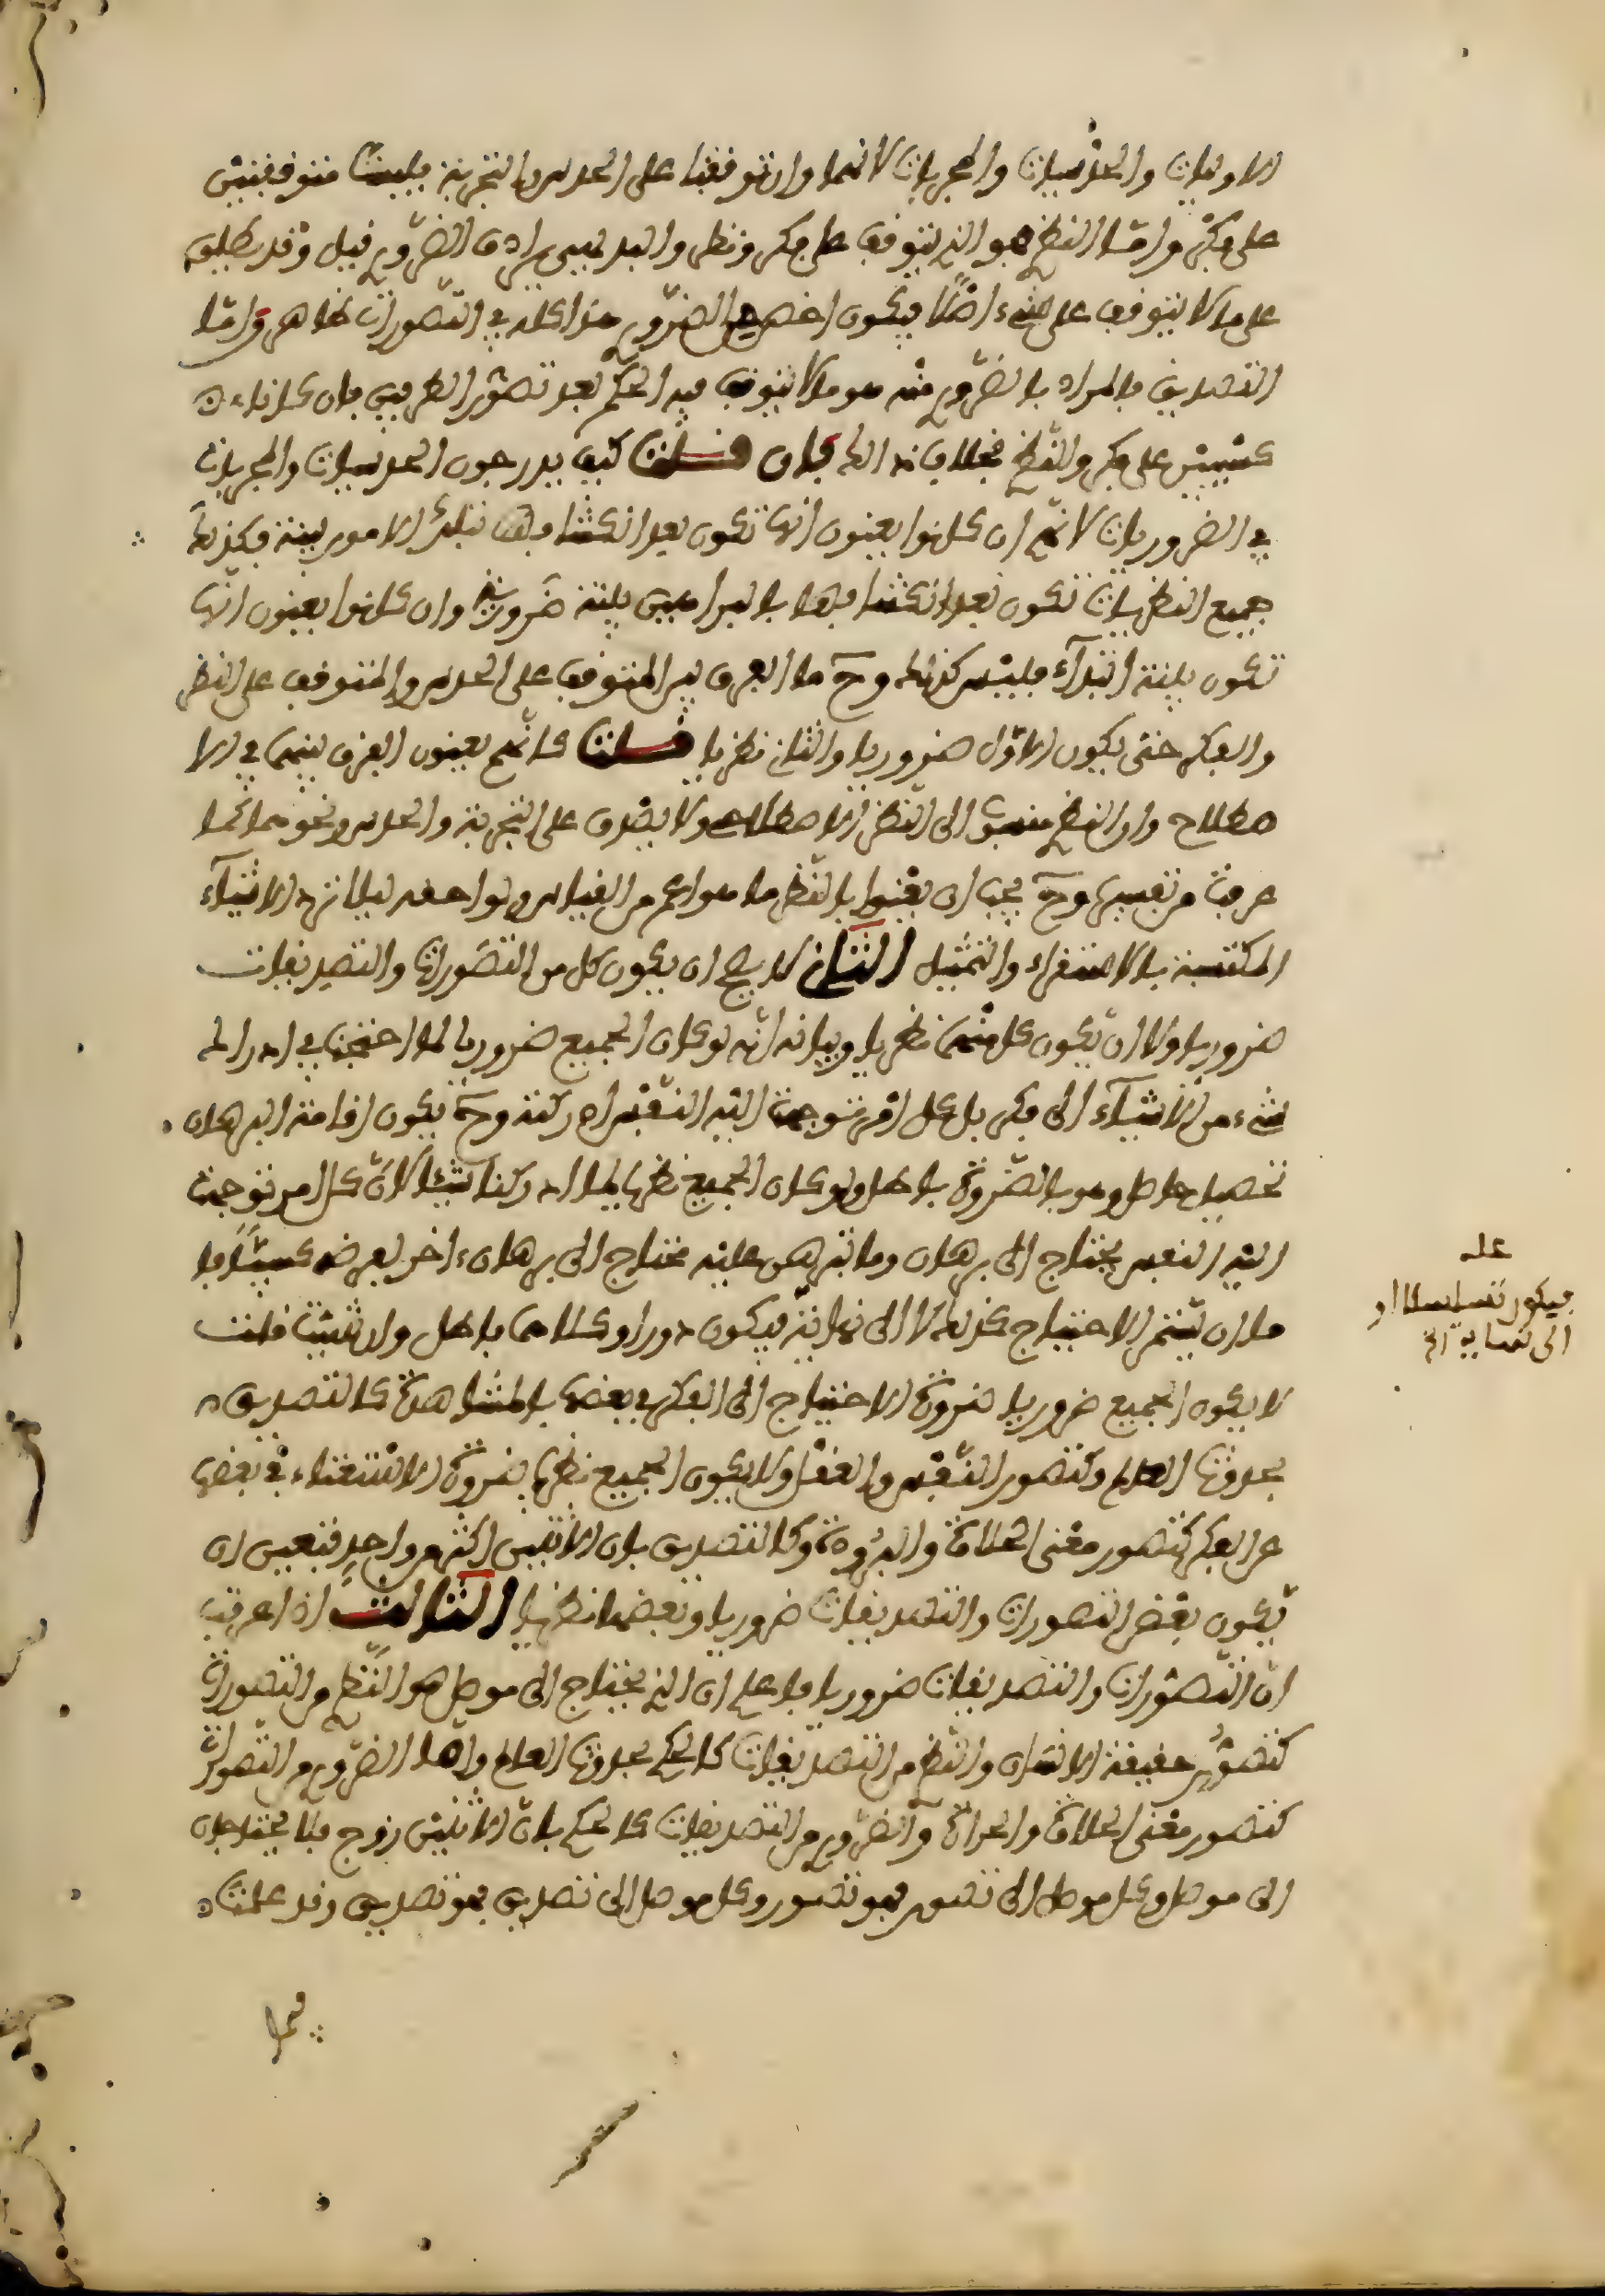 الاوليات والحدسيات والمجربات لانهما وان توقفتا على الحدس والتجربة فليستا متوقفتين
على فكر واما النظري فهو الذي يتوقف على فكر ونظر والبديهي يرادف الضروري قيل وقد يطلق
على ما لا يتوقف على شيء اصلا فيكون اخص من الضروري هذا كله في التصورات ظاهر واما
التصديق فالمراد بالضروري منه هو ما لا يتوقف فيه الحكم بعد تصور الطرفين وان كانا
كسبيين على فكر والنظري بخلاف ذلك فان قلت كيف يدرجون الحدسيات والمجربات
في الضروريات لانهم ان كانوا يعنون انها تكون بعد انكشافها بتلك الامور بينة فكذلك
جميع النظريات تكون بعد انكشافها بالبراهين بينة ضرورية وان كانوا يعنون انها
تكون بينة ابتداء فليس كذلك وح ما الفرق بين المتوقف على الحدس والمتوقف على النظر
والفكر حتى يكون الاول ضروريا والثاني نظريا قلت كانهم يعنون الفرق بينهما في الا
صطلاح وان النظري منسوب الى النظر الاصطلاحي ولا يصدق على التجربة والحدس ونحوهما كما
عرفت من تفسيره وح يجب ان يعنوا بالنظر ما هو اعم من القياس ولواحقه ليلا ترد الاشياء
المكتسبة بالاستقراء والتمثيل الثاني لا يصح ان يكون كل من التصورات والتصديقات
ضروريا ولا ان يكون كل منهما نظريا وبيانه انه لو كان الجميع ضروريا لما احتجنا في ادراك
شيء من الاشياء الى فكر بل كل امر توجهت اليه النفس ادركته وح يكون اقامة البرهان
تحصيل حاصل وهو بالضرورة باطل ولو كان الجميع نظريا لما ادركنا شيئا لان كل امر توجهت
اليه النفس يحتاج الى برهان وما تبرهن عليه محتاج الى برهان اخر لفرضه كسبيا فا
ما ان يستمر الاحتياج كذلك لا الى نهاية فيكون دورا وكلاهما باطل وان شئت قلت
لا يكون الجميع ضروريا لضرورة الاحتياج الى الفكر في بعضها بالمشاهدة كالتصديق
بحدوث العالم وكتصور النفس والعقل ولا يكون الجميع نظريا لضرورة الاستغناء في بعضها
عن الفكر كتصور معنى الحلاوة والبرودة وكالتصديق بان الاثنين اكثر من واحد فتعين ان
يكون بعض التصورات والتصديقات ضروريا وبعضها نظريا الثالث اذا عرفت
ان التصورات والتصديقات ضروريا فاعلم ان الذي يحتاج الى موصل هو النظري من التصورات
كتصور حقيقة الانسان والنظري من التصديقات كالحكم بحدوث العالم واما الضروري من التصورات
كتصور معنى الحلاوة والحرارة والضروري من التصديقات كالحكم بان الاثنين زوج فلا يحتاجان
الى موصل وكل موصل الى تصور فهو تصور وكل موصل الى تصديق فهو تصديق وقد علمت
فيكون تسلسلا او